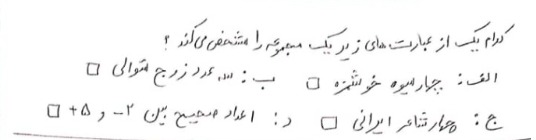 کدام یک از عبارت های زیر یک مجموعه را مشخص می کند ؟
الف : چهار میوه خوشمزه □ ب : سه عدد زوج متوالی □
ج : چهار شاعر ایرانی □ د : اعداد صحیح بین ۲- و ۵+ □